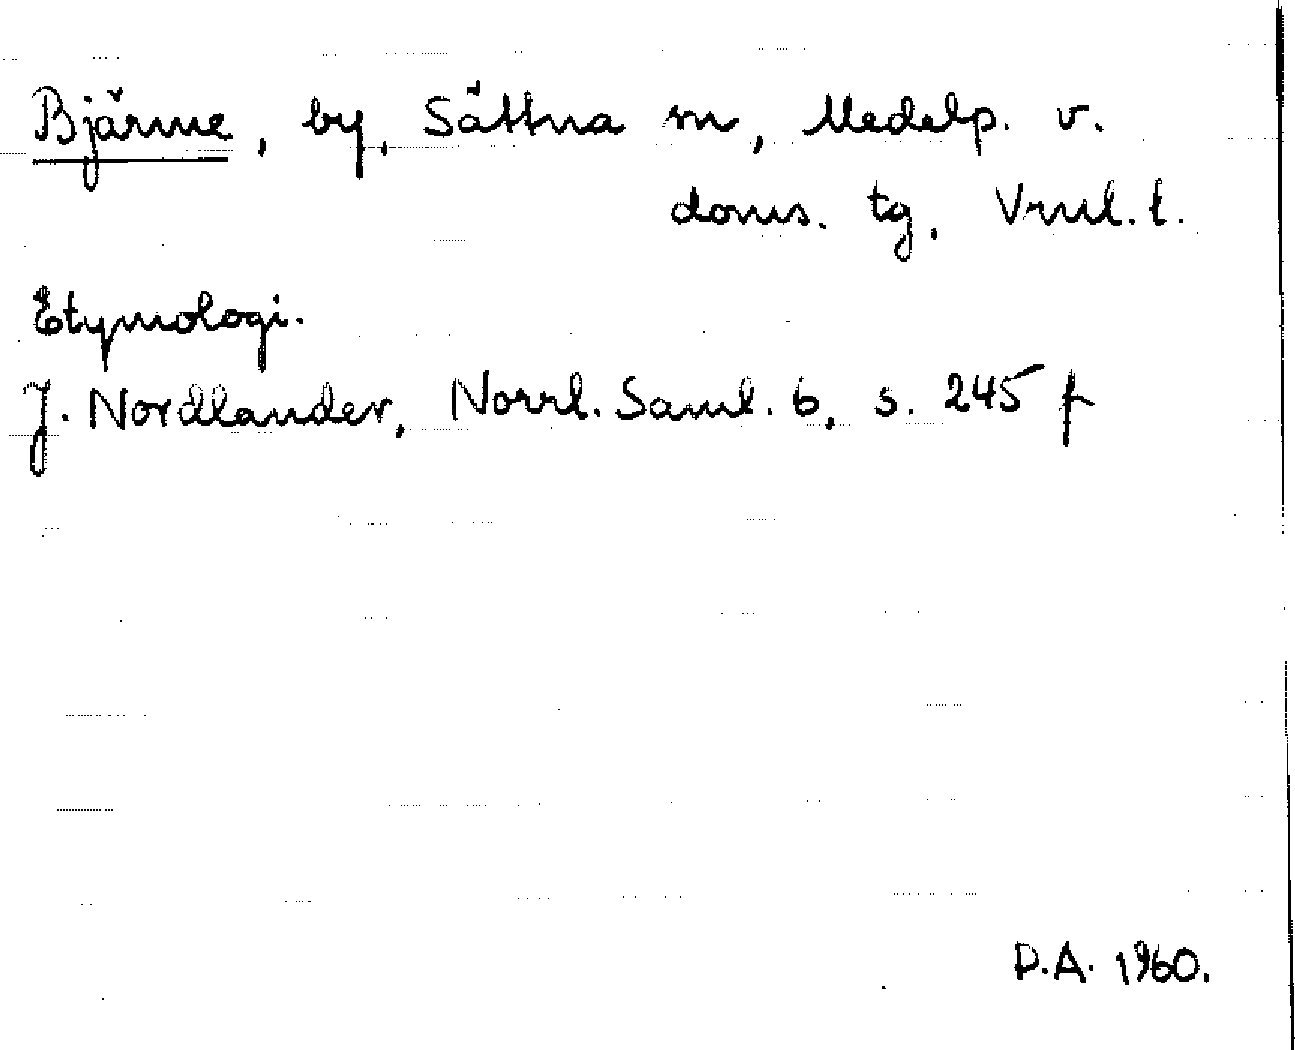 Bjärme, by, Sättna sn, Medelp. v.
doms. tg, Vrnl. l.
Etymologi.
J. Nordlander, Norrl. Saml. 6, s. 245 f
D.A. 1960.